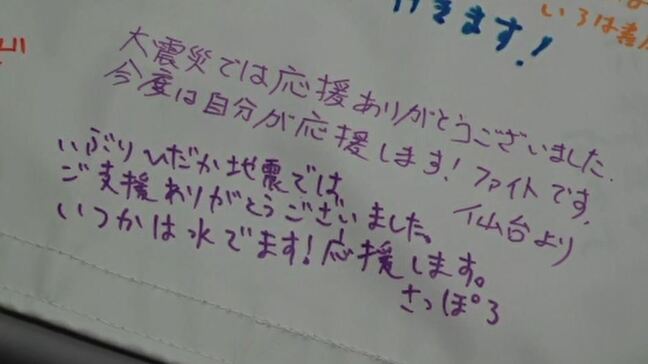 きます!
大震災では応援ありがとうございました.
今度は自分が応援します! ファイトです.
仙台より
いぶりひだか地震では
ご支援ありがとうございました。
いつかは水でます!応援します。
さっぽろ